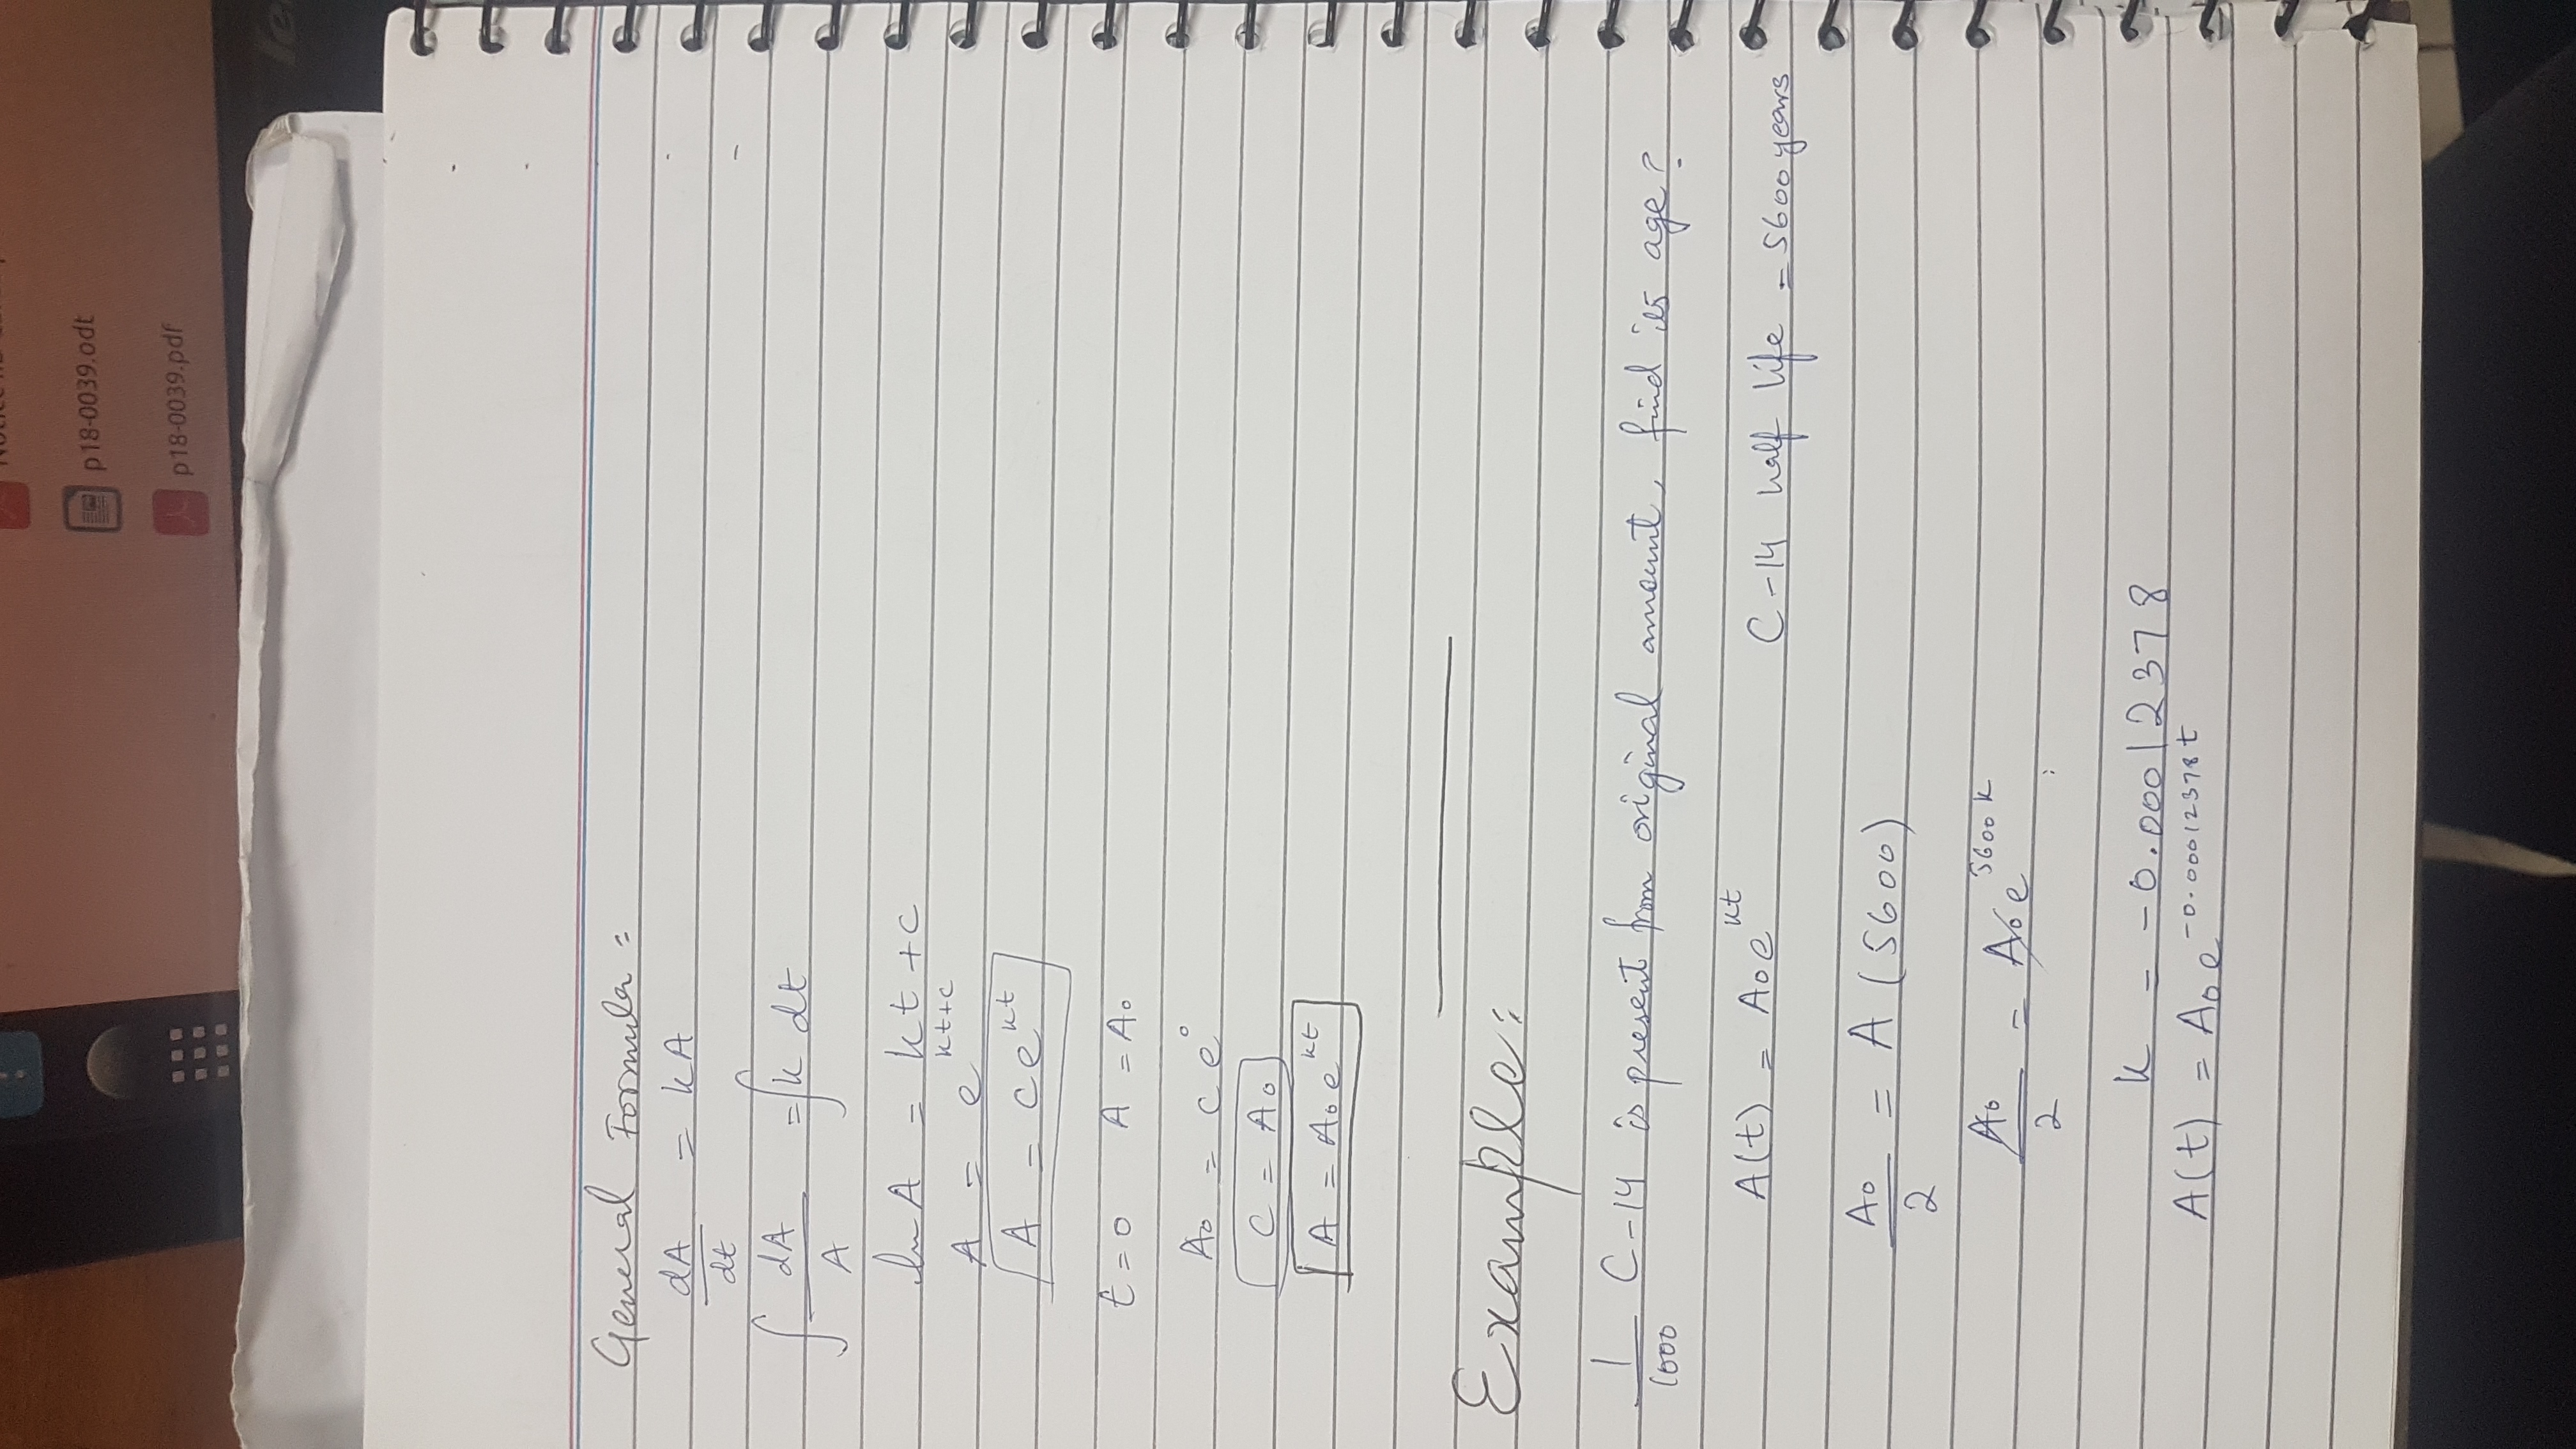 p18-0039.odt
p18-0039.pdf
General Formula :
dA/dt = kA
∫ dA/A = ∫ k dt
ln A = kt + c
A = e^{kt+c}
A = ce^{kt}
t = 0 A = A₀
A₀ = c e⁰
C = A₀
A = A₀e^{kt}
Example:
1/1000 C-14 is present from original amount, find its age?
A(t) = A₀e^{kt} C-14 half life = 5600 years
A₀/2 = A (5600)
A₀/2 = A₀e^{5600k}
k = -0.00012378
A(t) = A₀e^{-0.00012378t}